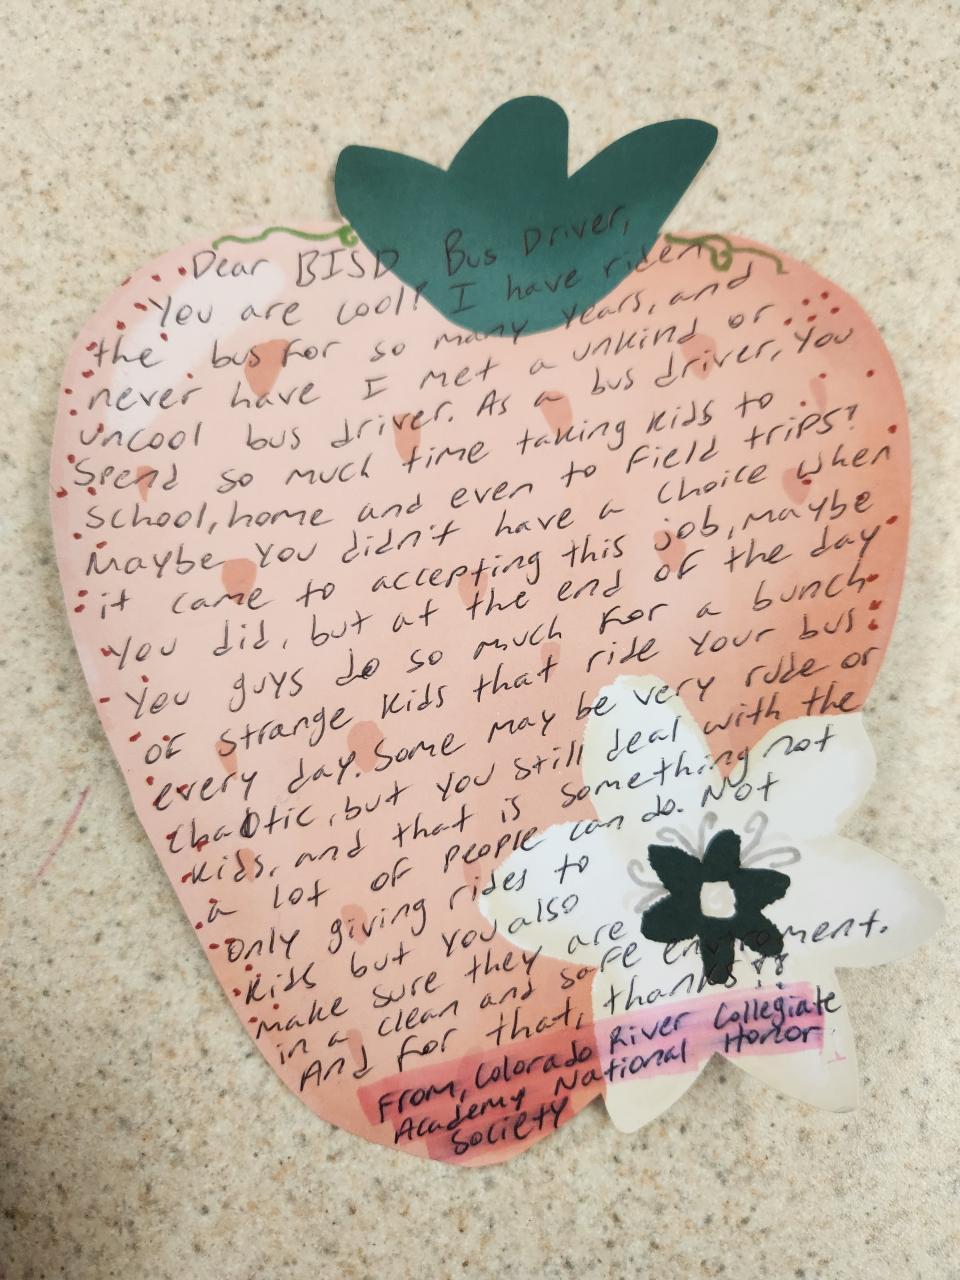 Dear BISD Bus Driver,
You are cool! I have riden
the bus for so many years, and
never have I met a unkind or
uncool bus driver. As a bus driver, you
spend so much time taking kids to
school, home and even to field trips!
Maybe you didn't have a choice when
it came to accepting this job, maybe
you did, but at the end of the day
you guys do so much for a bunch
of strange kids that ride your bus
every day. Some may be very rude or
chaotic, but you still deal with the
kids, and that is something not
a lot of people can do. Not
only giving rides to
kids but you also
make sure they are
in a clean and safe enviroment.
And for that, thanks!!
From, Colorado River Collegiate
Academy National Honor
Society